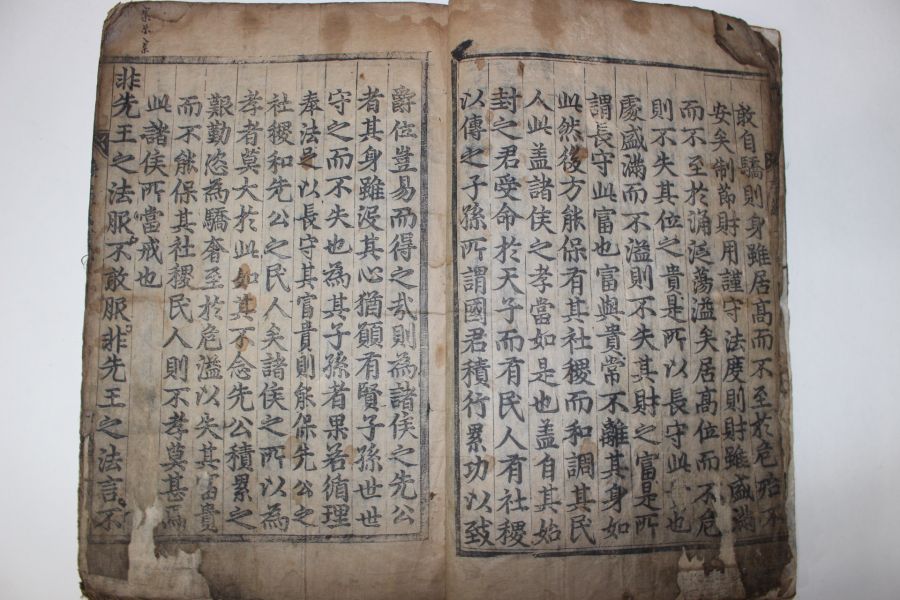 敢自驕則身雖居高而不至於危殆不
安矣制節財用謹守法度則財雖盛滿
而不至於涌泛蕩溢矣居高位而不危
則不失其位之貴是所以長守此 也
處盛滿而不溢則不失其財之富是所
謂長守此富也富與貴常不離其身如
此然後方能保有其社稷而和調其民
人此盖諸侯之孝當如是也盖自其始
封之君受命於天子而有民人有社稷
以傳之子孫所謂國君積行累功以致
爵位豈易而得之㢤則為諸侯之先公
者其身雖沒其心猶願有賢子孫世世
守之而不失也為其子孫者果若循理
奉法足以長守其富貴則能保先公之
社稷和先公之民人矣諸侯之所以為
孝者莫大於此如其不念先公積累之
艱勤恣為驕奢至於危溢以失其富貴
而不能保其社稷民人則不孝莫甚焉
此諸侯所當戒也
非先王之法服不敢服非先王之法言不